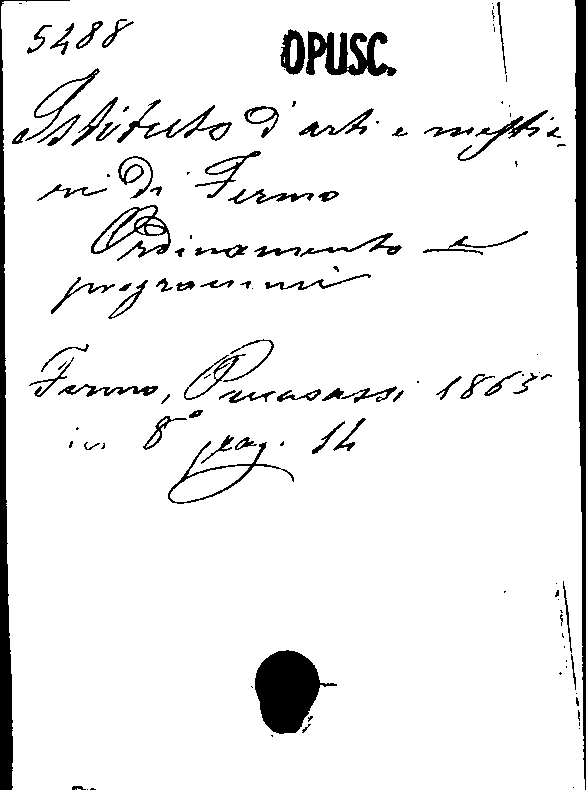 5488 OPUSC.
Istituto d'arti e mestie-
ri di Fermo
Ordinamento e
programmi
Fermo, Paccasassi 1865
in 8° pag. 14